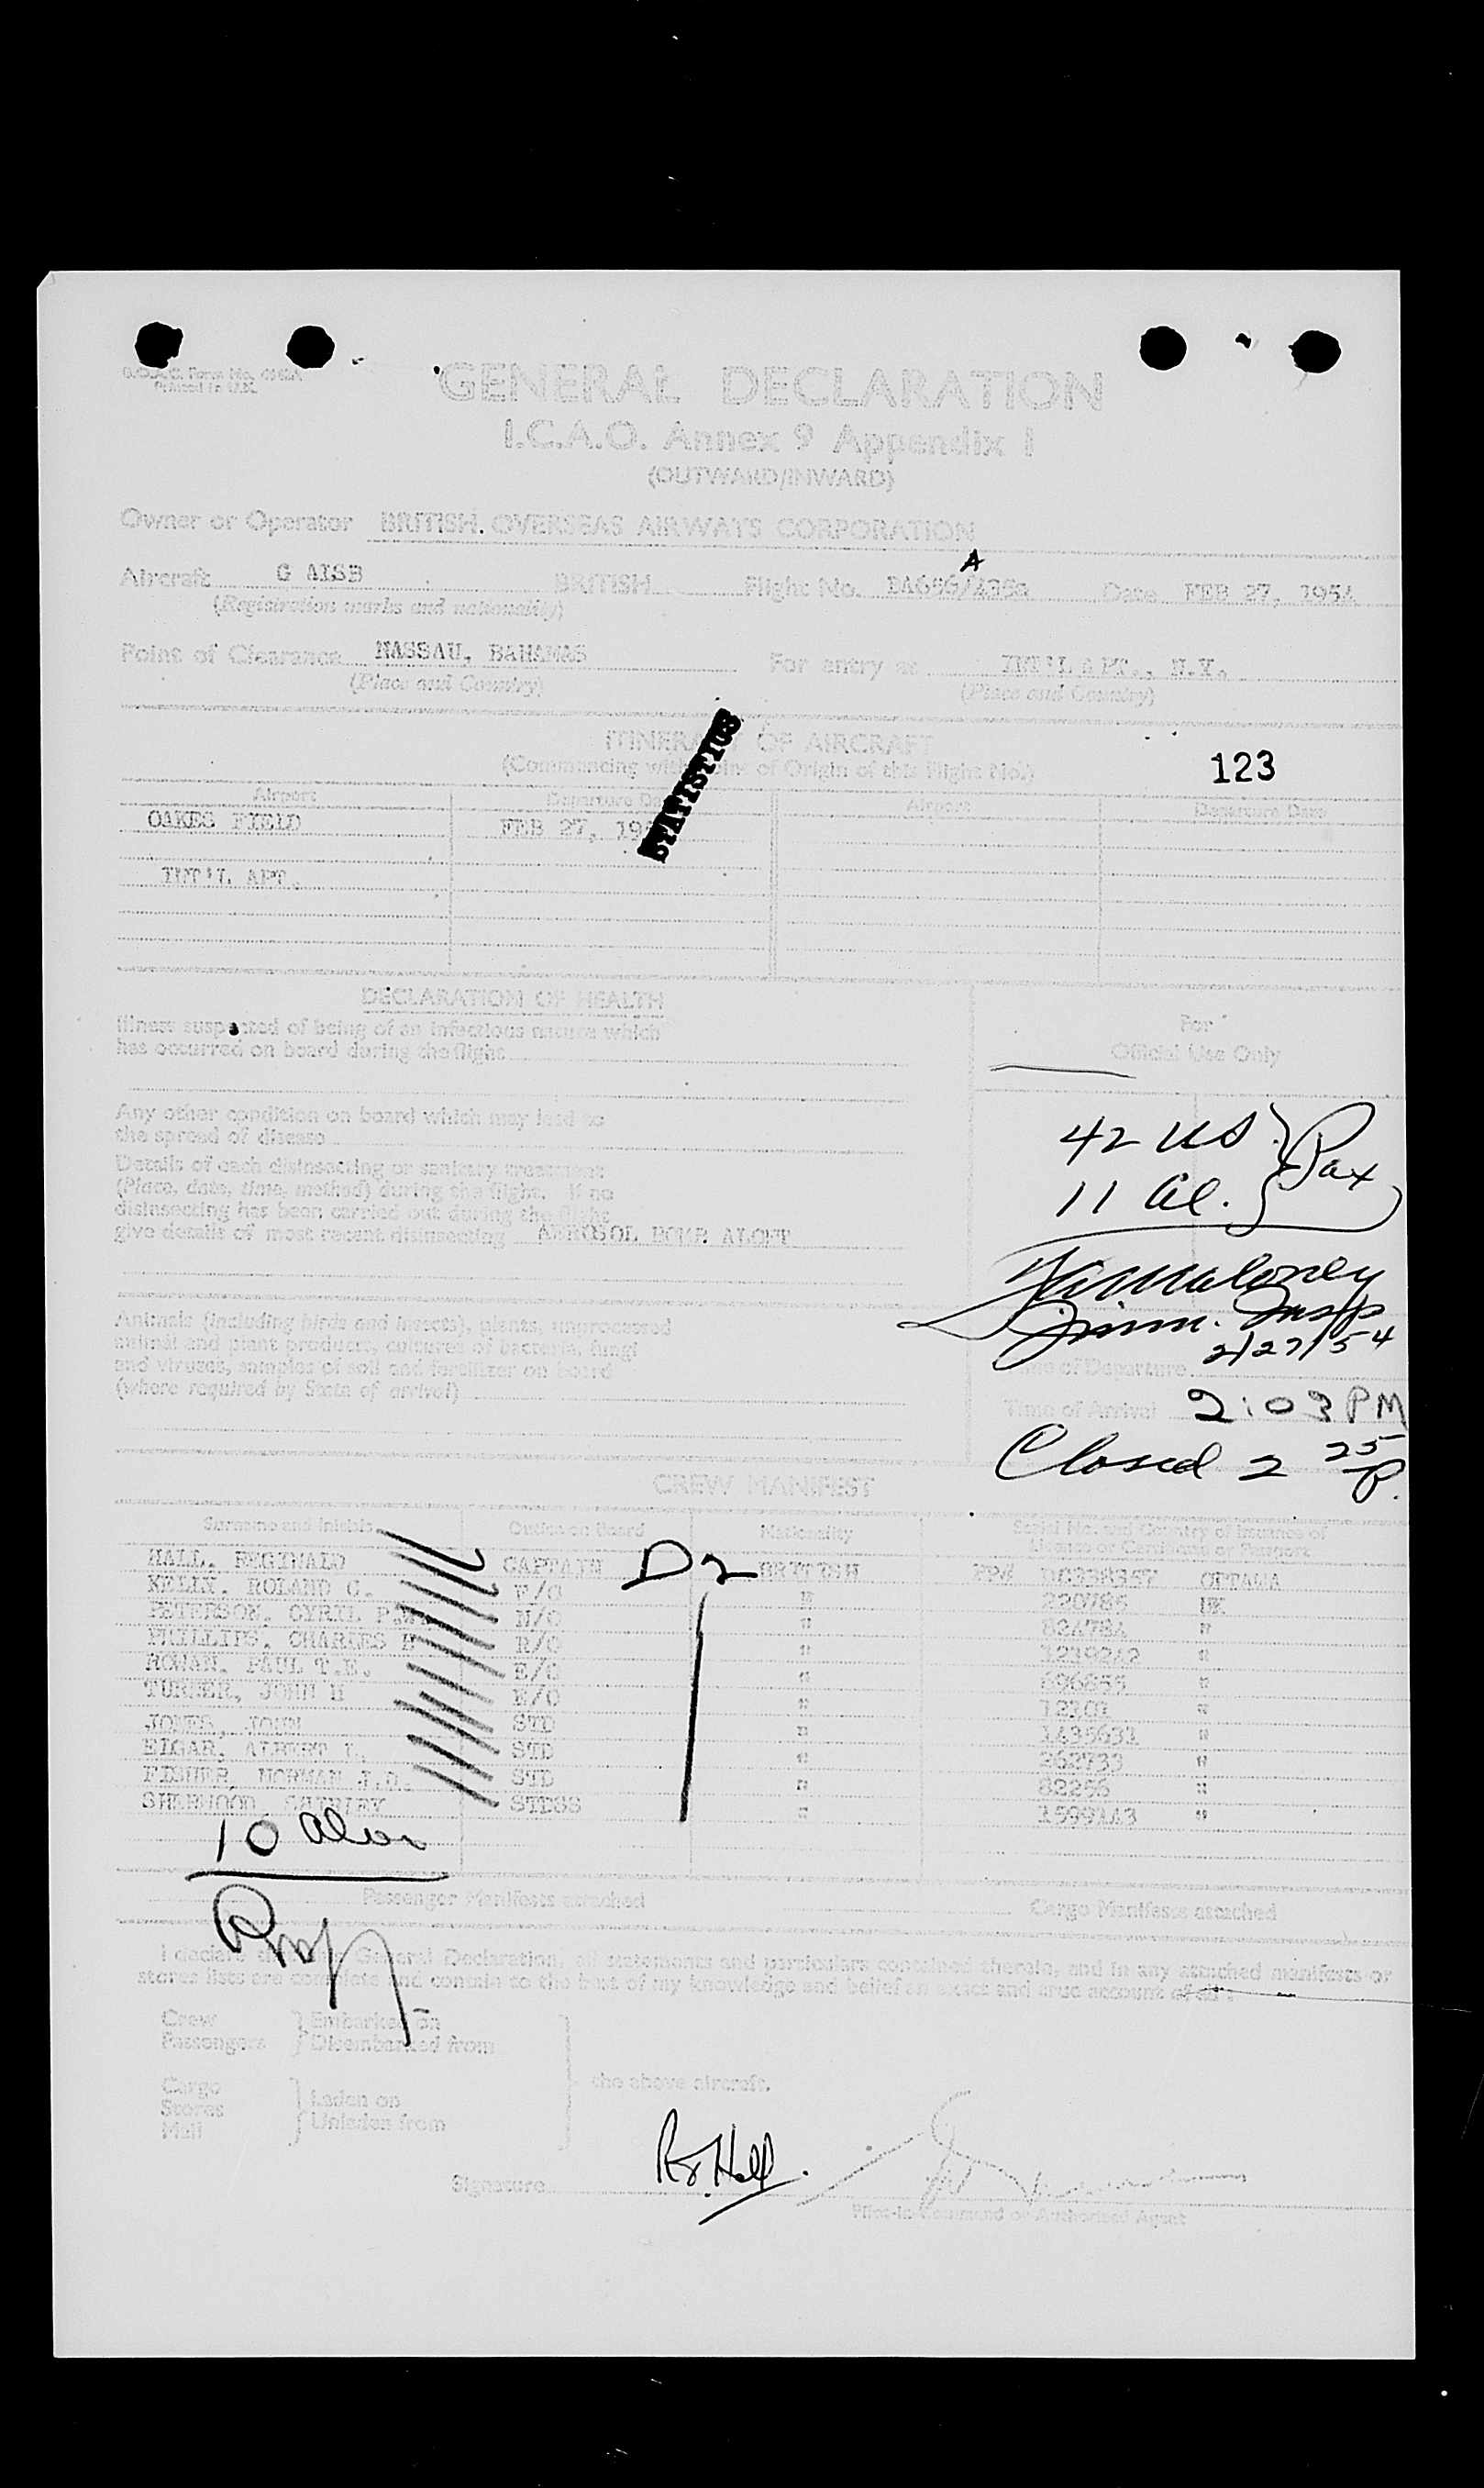 Printed in U.K.
GENERAL DECLARATION
I.C.A.O. Annex 9 Appendix I
(OUTWARD/INWARD)
Owner or Operator BRITISH OVERSEAS AIRWAYS CORPORATION
A
Aircraft BRITISH Flight No. Date FEB 27, 1954
(Registration marks and nationality)
Point of Clearance NASSAU, BAHAMAS For entry at INT'L APT., N.Y.
(Place and Country) (Place and Country)
STATISTICS
ITINERARY OF AIRCRAFT
(Commencing with Point of Origin of this Flight No.)
123
Airport Departure Date Airport Departure Date
OAKES FIELD FEB 27, 19
INT'L APT.
DECLARATION OF HEALTH
Illness suspected of being of an infectious nature which
has occurred on board during the flight
For
Official Use Only
Any other condition on board which may lead to
the spread of disease
Details of each disinsecting or sanitary treatment
(Place, date, time, method) during the flight. If no
disinsecting has been carried out during the flight
give details of most recent disinsecting AEROSOL BOMB ALOFT
42 US } Pax
11 Al.
Maloney
Imm. Insp
2/27/54
Animals (including birds and insects), plants, unprocessed
animal and plant products, cultures of bacteria, fungi
and viruses, samples of soil and fertilizer on board
(where required by State of arrival)
Time of Departure
Time of Arrival 2:03 PM
Closed 2 25 P.
CREW MANIFEST
Surname and Initials Duties on Board Nationality Serial No. and Country of Issuance of
License or Certificate or Passport
HALL, REGINALD CAPTAIN D2 BRITISH OTTAWA
KELLY, ROLAND C. F/O " 220786 UK
PETERSON, CYRIL N/O " "
PHILLIPS, CHARLES H R/O " "
ROWAN, PAUL T.E. E/O " "
TURNER, JOHN H E/O " "
JONES, JOHN STD " "
EDGAR, ALBERT L. STD " 262733 "
FISHER, NORMAN STD " "
SHERWOOD, SHIRLEY STDSS " "
10 Alien
Passenger Manifests attached Cargo Manifests attached
I declare that this General Declaration, all statements and particulars contained therein, and in any attached manifests or
stores lists are complete and contain to the best of my knowledge and belief an exact and true account of all:
Crew } Embarked on
Passengers } Disembarked from
the above aircraft.
Cargo } Laden on
Stores
Mail } Unladen from
Signature R. Hall.
Pilot-in-Command or Authorised Agent